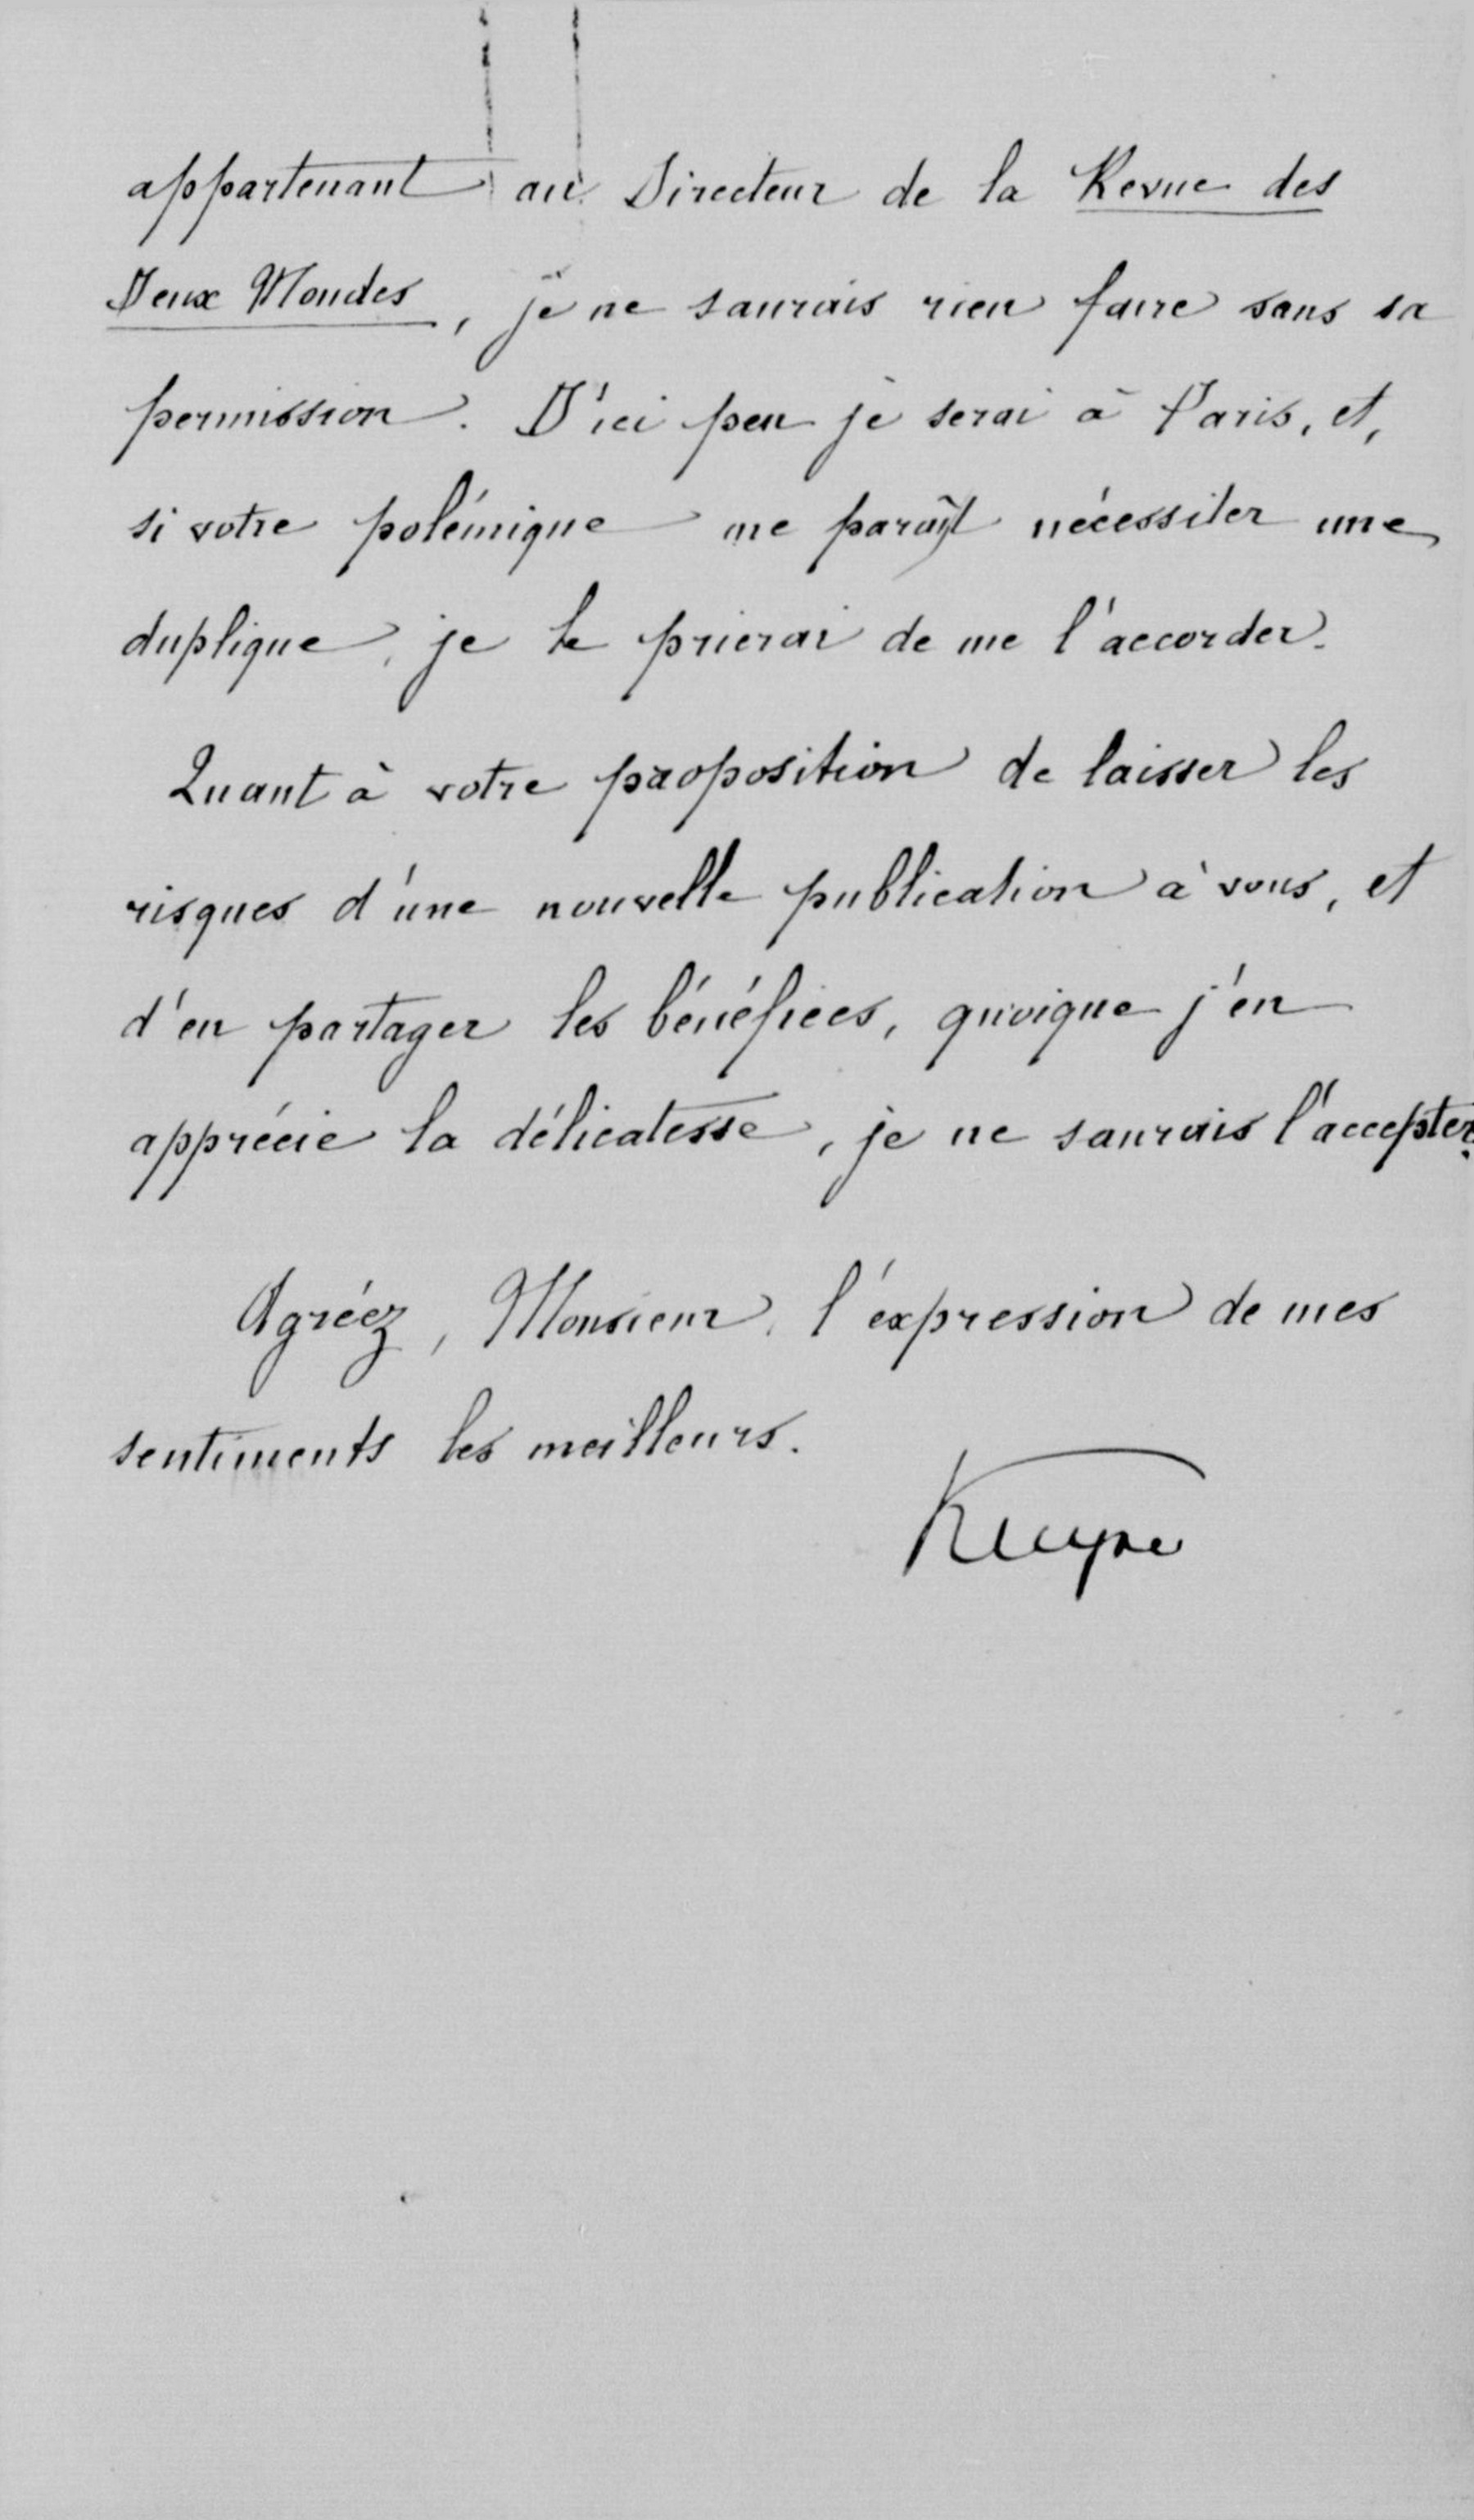 appartenant au Directeur de la Revue des
Deux Mondes, je ne saurais rien faire sans sa
permission. D'ici peu je serai à Paris, et,
si votre polémique me paraît nécessiter une
duplique, je le prierai de me l'accorder.
Quant à votre proposition de laisser les
risques d'une nouvelle publication à vous, et
d'en partager les bénéfices, quoique j'en
apprécie la délicatesse, je ne saurais l'accepter.
Agréez, Monsieur, l'expression de mes
sentiments les meilleurs.
Kuyper